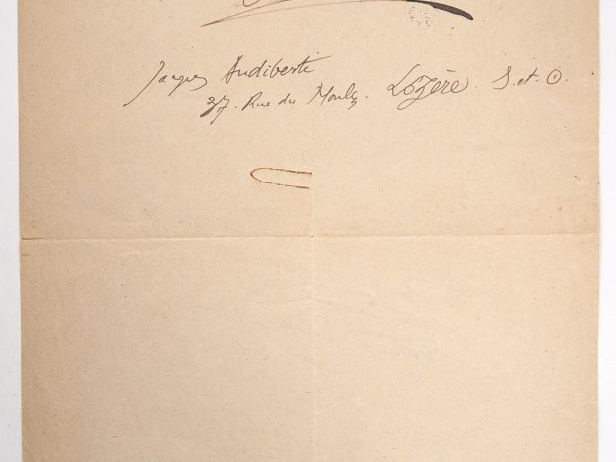 Jacques Audiberti
37. Rue du Moulin. Lozère. S. et. O.